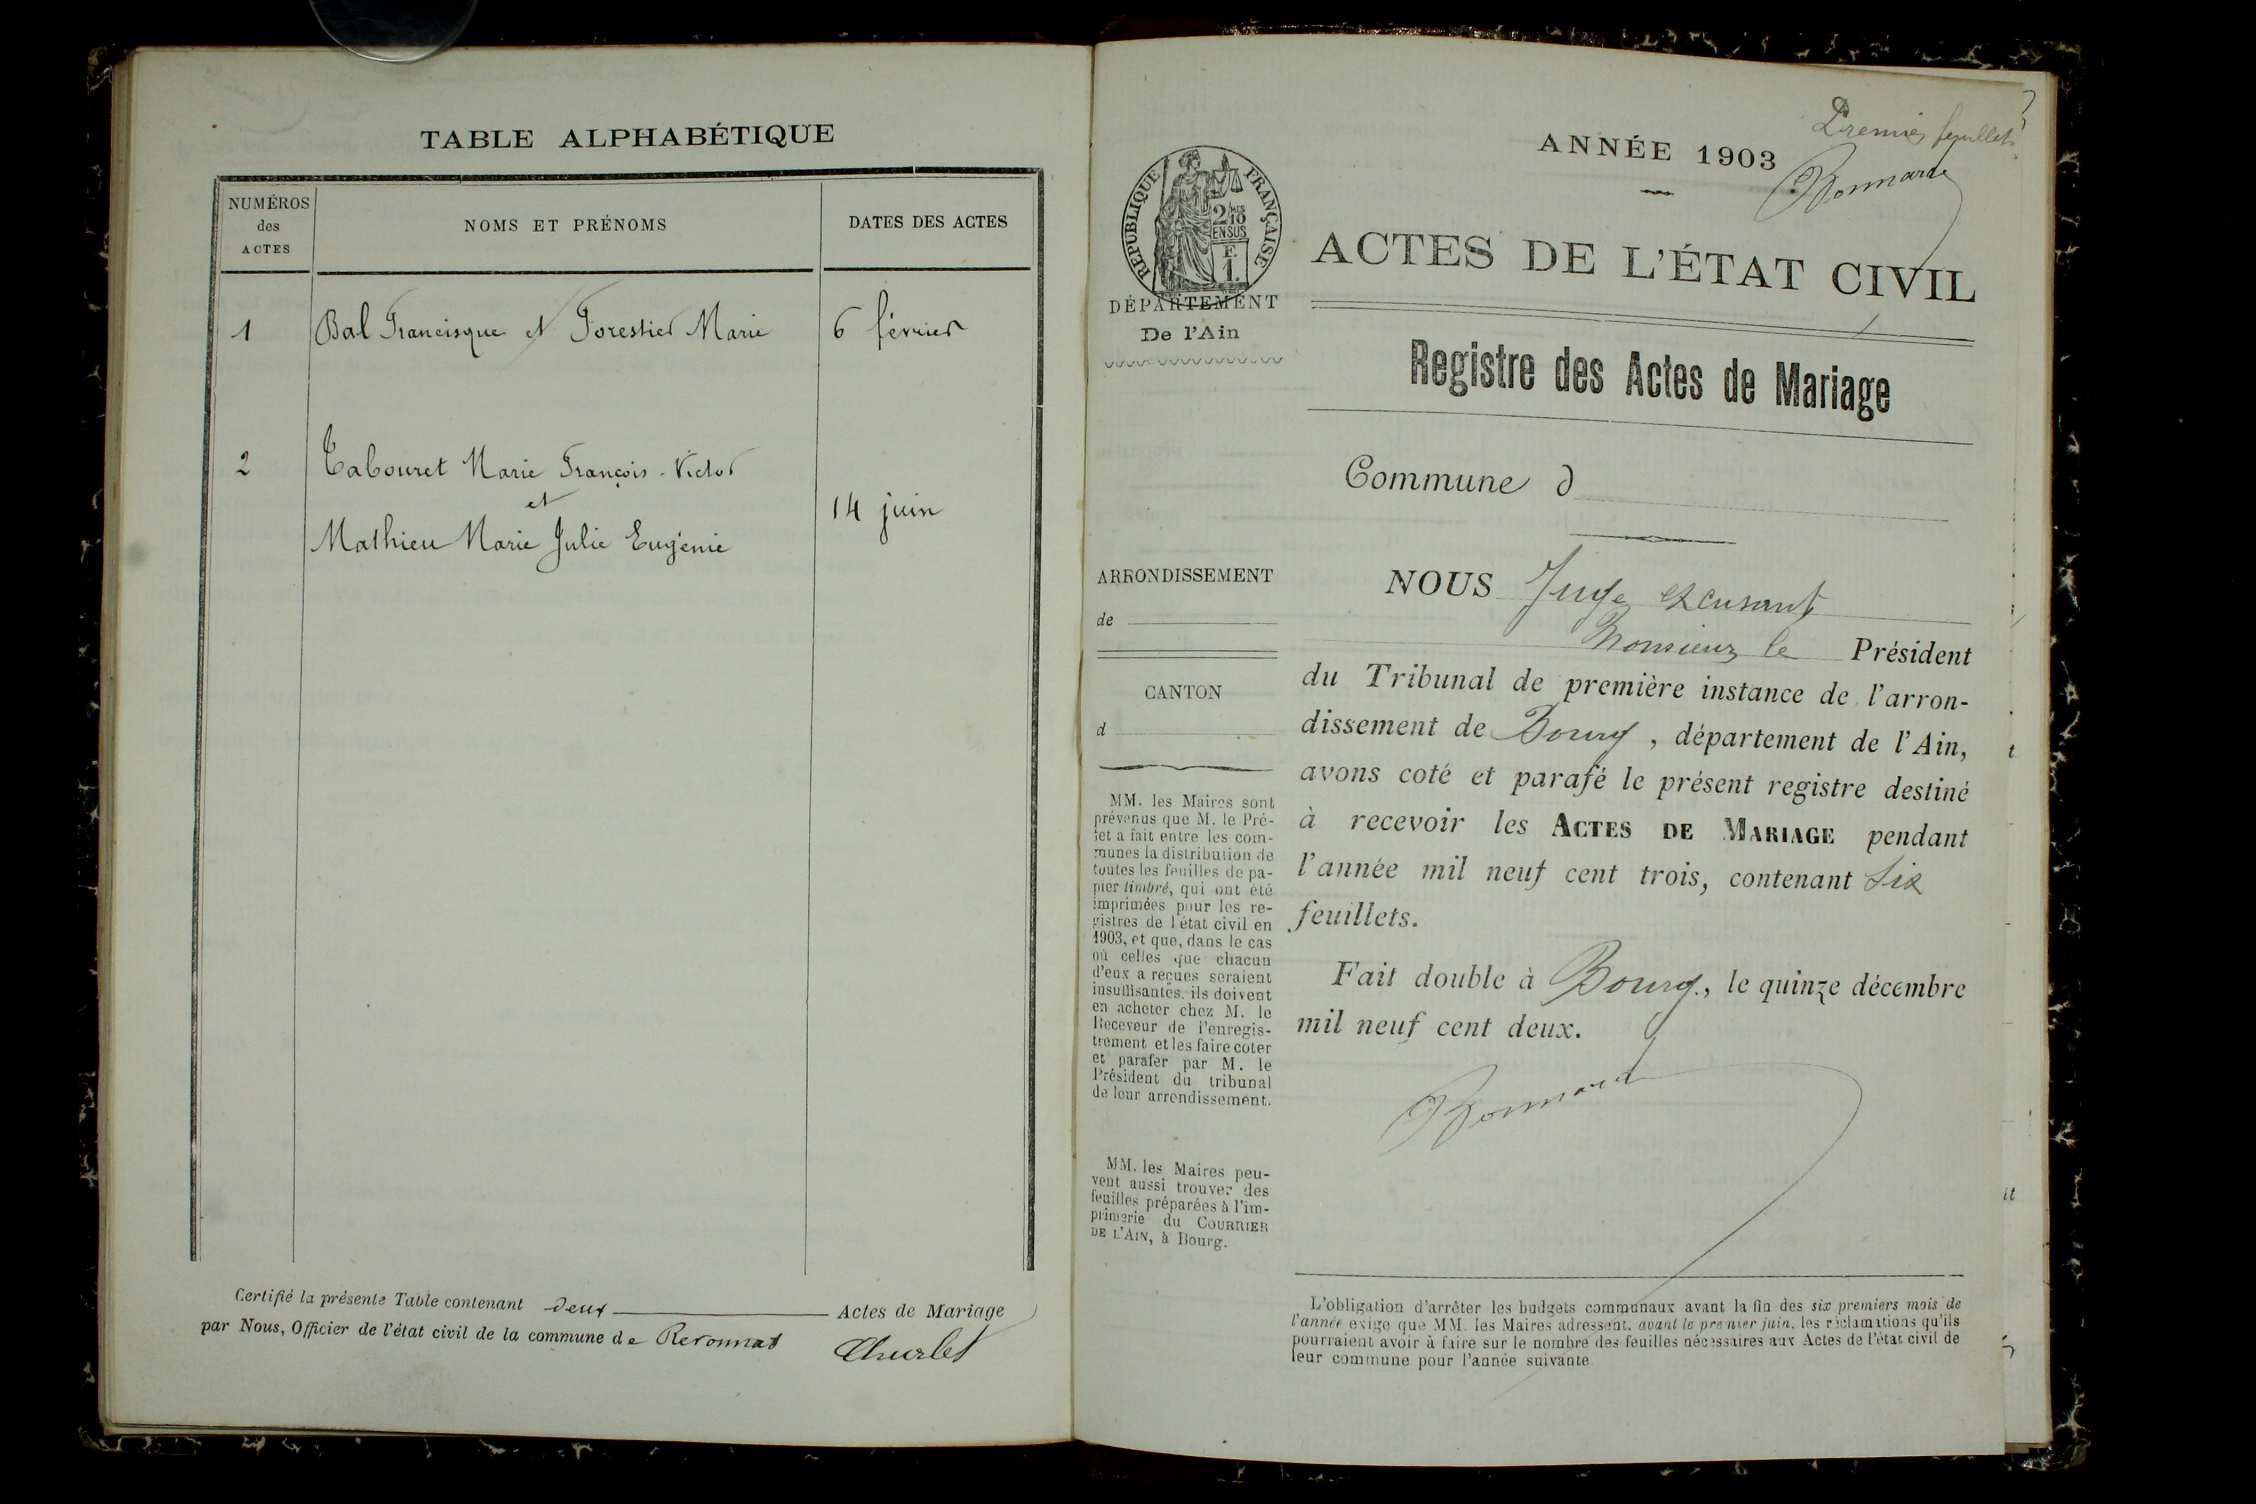 TABLE ALPHABÉTIQUE
NUMÉROS
des
ACTES
NOMS ET PRÉNOMS
DATES DES ACTES
1 Bal Francisque et Forestier Marie 6 février
2 Tabouret Marie François-Victor
et
14 juin
Mathieu Marie Julie Eugénie
Certifié la présente Table contenant deux Actes de Mariage
par Nous, Officier de l'état civil de la commune de Revonnas
Churlet
Premier feuillet
ANNÉE 1903
Bonnarde
RÉPUBLIQUE FRANÇAISE
ACTES DE L'ÉTAT CIVIL
DÉPARTEMENT
De l'Ain
Registre des Actes de Mariage
Commune d
ARRONDISSEMENT
de
CANTON
d
MM. les Maires sont
prévenus que M. le Pré-
fet a fait entre les com-
munes la distribution de
toutes les feuilles de pa-
pier timbré, qui ont été
imprimées pour les re-
gistres de l'état civil en
1903, et que, dans le cas
où celles que chacun
d'eux a reçues seraient
insuffisantes, ils doivent
en acheter chez M. le
Receveur de l'enregis-
trement et les faire coter
et parafer par M. le
Président du tribunal
de leur arrondissement.
MM. les Maires peu-
vent aussi trouver des
feuilles préparées à l'im-
primerie du COURRIER
DE L'AIN, à Bourg.
NOUS Juge excusant
Monsieur le Président
du Tribunal de première instance de l'arron-
dissement de Bourg, département de l'Ain,
avons coté et parafé le présent registre destiné
à recevoir les ACTES DE MARIAGE pendant
l'année mil neuf cent trois, contenant six
feuillets.
Fait double à Bourg, le quinze décembre
mil neuf cent deux.
Bonnarde
L'obligation d'arrêter les budgets communaux avant la fin des six premiers mois de
l'année exige que MM. les Maires adressent, avant le premier juin, les réclamations qu'ils
pourraient avoir à faire sur le nombre des feuilles nécessaires aux Actes de l'état civil de
leur commune pour l'année suivante.